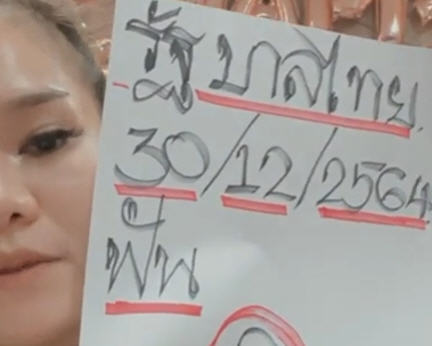 รัฐบาลไทย
30/12/2564
ฟัน